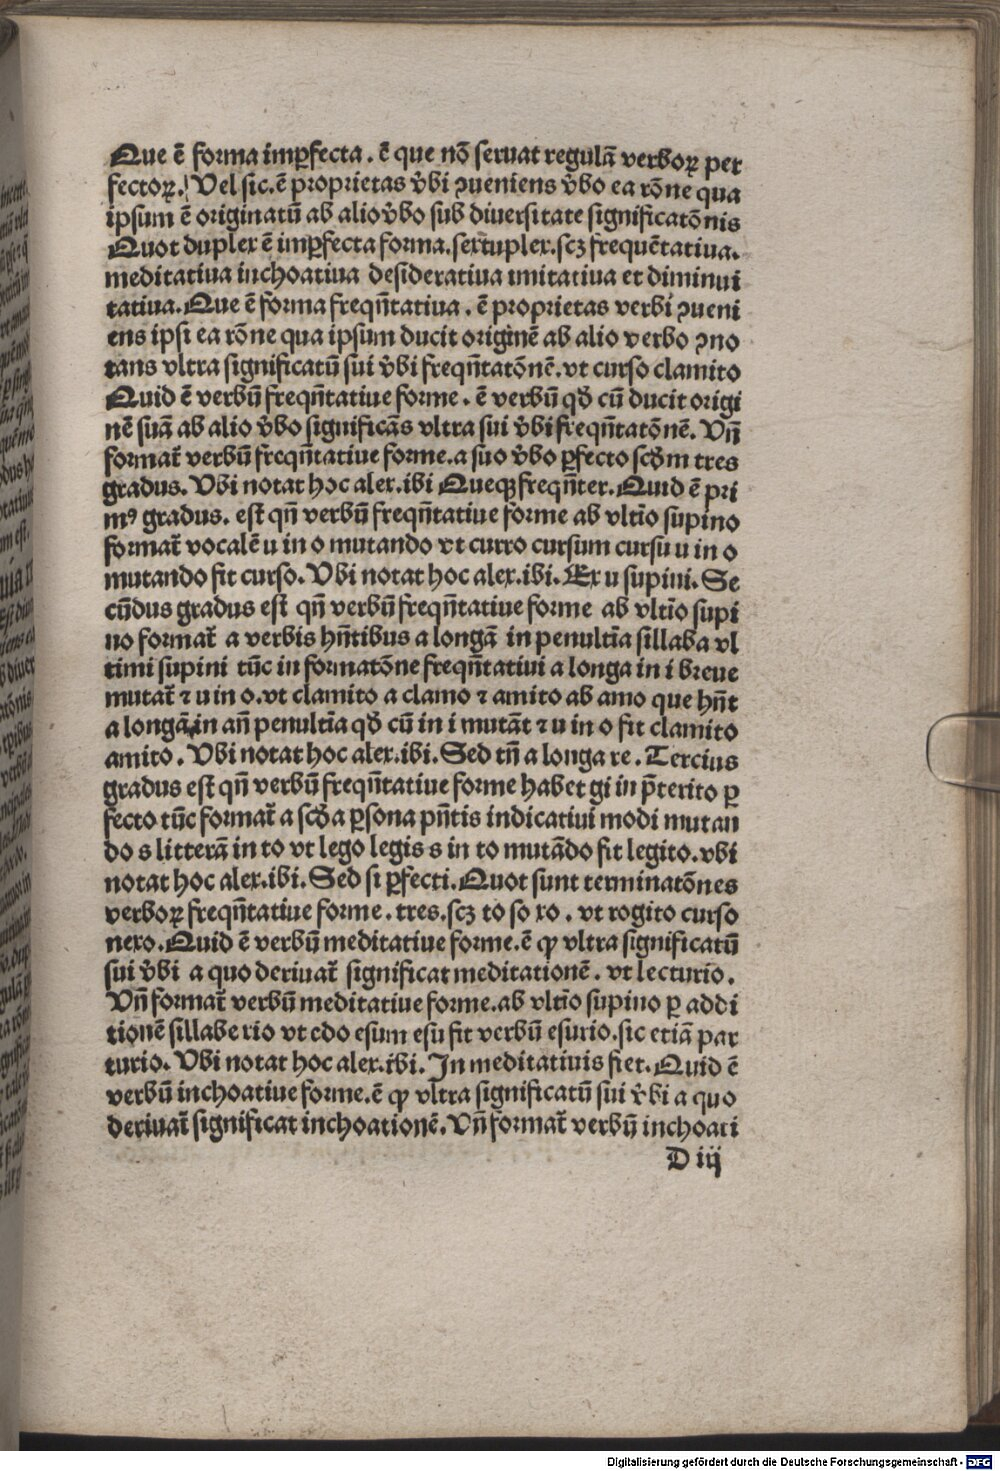 Que ē forma imꝑfecta. ē que nō seruat regulā verboꝝ per
fectoꝝ. Vel sic. ē proprietas v̄bi ꝯueniens v̄bo ea rōne qua
ipsum ē originatū ab alio v̄bo sub diuersitate significatōnis
Quot duplex ē imꝑfecta forma. sextuplex. scꝫ frequētatiua.
meditatiua inchoatiua desideratiua imitatiua et diminui
tatiua. Que ē forma freqn̄tatiua. ē proprietas verbi ꝯueni
ens ipsi ea rōne qua ipsum ducit originē ab alio verbo ꝯno
tans vltra significatū sui v̄bi freqn̄tatōnē. vt curso clamito
Quid ē verbū freqn̄tatiue forme. ē verbū qđ cū ducit origi
nē suā ab alio v̄bo significās vltra sui v̄bi freqn̄tatōnē. Vn̄
format᷑ verbū freqn̄tatiue forme. a suo v̄bo ꝑfecto scđm tres
gradus. Vbi notat hoc alex. ibi Queqꝫ freqn̄ter. Quid ē pri
mꝰ gradus. est qn̄ verbū freqn̄tatiue forme ab vltīo supino
format᷑ vocalē u in o mutando vt curro cursum cursu u in o
mutando fit curso. Vbi notat hoc alex. ibi. Ex u supini. Se
cūdus gradus est qn̄ verbū freqn̄tatiue forme ab vltīo supi
no format᷑ a verbis hn̄tibus a longā in penultīa sillaba vl
timi supini tūc in formatōne freqn̄tatiui a longa in i breue
mutat᷑ ⁊ u in o. vt clamito a clamo ⁊ amito ab amo que hn̄t
a longā in an̄ penultīa qđ cū in i mutāt ⁊ u in o fit clamito
amito. Vbi notat hoc alex. ibi. Sed tn̄ a longa re. Tercius
gradus est qn̄ verbū freqn̄tatiue forme habet gi in p̄terito ꝑ
fecto tūc format᷑ a scđa ꝑsona pn̄tis indicatiui modi mutan
do s litterā in to vt lego legis s in to mutādo fit legito. vbi
notat hoc alex. ibi. Sed si ꝑfecti. Quot sunt terminatōnes
verboꝝ freqn̄tatiue forme. tres. scꝫ to so xo. vt rogito curso
nexo. Quid ē verbū meditatiue forme. ē ꝙ vltra significatū
sui v̄bi a quo deriuat᷑ significat meditationē. vt lecturio.
Vn̄ format᷑ verbū meditatiue forme. ab vltīo supino ꝑ addi
tionē sillabe rio vt edo esum esu fit verbū esurio. sic etiā par
turio. Vbi notat hoc alex. ibi. In meditatiuis fiet. Quid ē
verbū inchoatiue forme. ē ꝙ vltra significatū sui v̄bi a quo
deriuat᷑ significat inchoationē. Vn̄ format᷑ verbū inchoati
D iij
Digitalisierung gefördert durch die Deutsche Forschungsgemeinschaft - DFG